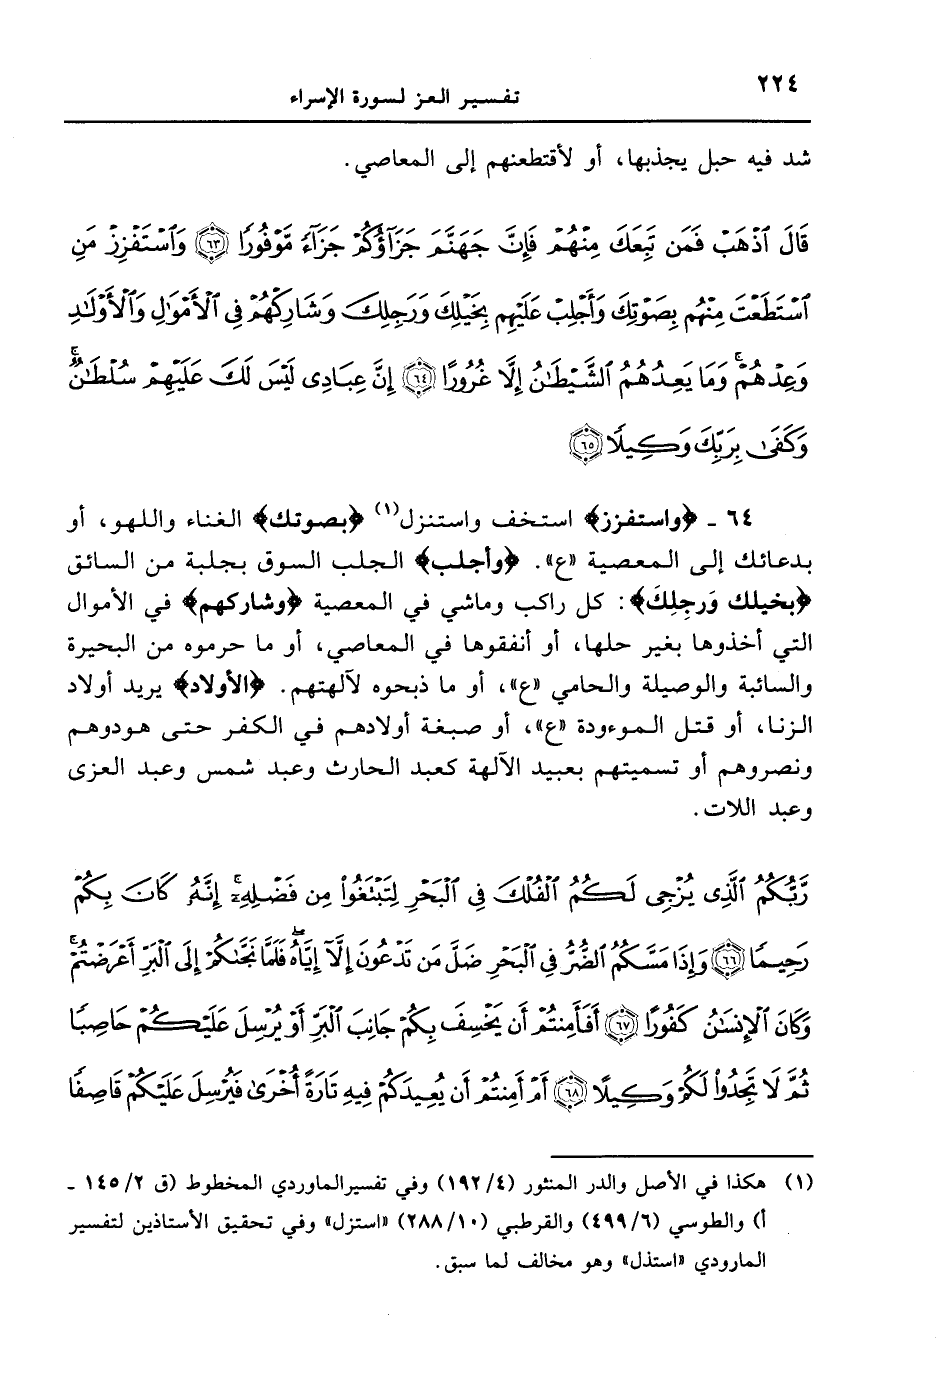 ٢٢٤
تفسير العز لسورة الإسراء
شد فيه حبل يجذبها، أو لأقتطعنهم إلى المعاصي.
قَالَ ٱذْهَبْ فَمَن تَبِعَكَ مِنْهُمْ فَإِنَّ جَهَنَّمَ جَزَآؤُكُمْ جَزَآءً مَّوْفُورًا ٦٣ وَٱسْتَفْزِزْ مَنِ
ٱسْتَطَعْتَ مِنْهُم بِصَوْتِكَ وَأَجْلِبْ عَلَيْهِم بِخَيْلِكَ وَرَجِلِكَ وَشَارِكْهُمْ فِى ٱلْأَمْوَٰلِ وَٱلْأَوْلَٰدِ
وَعِدْهُمْ ۚ وَمَا يَعِدُهُمُ ٱلشَّيْطَٰنُ إِلَّا غُرُورًا ٦٤ إِنَّ عِبَادِى لَيْسَ لَكَ عَلَيْهِمْ سُلْطَٰنٌ ۚ
وَكَفَىٰ بِرَبِّكَ وَكِيلًا ٦٥
٦٤ ـ ﴿واستفزز﴾ استخف واستنزل(١) ﴿بصوتك﴾ الغناء واللهو، أو
بدعائك إلى المعصية «ع». ﴿وأجلب﴾ الجلب السوق بجلبة من السائق
﴿بخيلك وَرجِلِكَ﴾: كل راكب وماشي في المعصية ﴿وشاركهم﴾ في الأموال
التي أخذوها بغير حلها، أو أنفقوها في المعاصي، أو ما حرموه من البحيرة
والسائبة والوصيلة والحامي «ع»، أو ما ذبحوه لآلهتهم. ﴿الأولاد﴾ يريد أولاد
الزنا، أو قتل الموءودة «ع»، أو صبغة أولادهم في الكفر حتى هودوهم
ونصروهم أو تسميتهم بعبيد الآلهة كعبد الحارث وعبد شمس وعبد العزى
وعبد اللات.
رَّبُّكُمُ ٱلَّذِى يُزْجِى لَكُمُ ٱلْفُلْكَ فِى ٱلْبَحْرِ لِتَبْتَغُوا۟ مِن فَضْلِهِۦٓ ۚ إِنَّهُۥ كَانَ بِكُمْ
رَحِيمًا ٦٦ وَإِذَا مَسَّكُمُ ٱلضُّرُّ فِى ٱلْبَحْرِ ضَلَّ مَن تَدْعُونَ إِلَّآ إِيَّاهُ ۖ فَلَمَّا نَجَّىٰكُمْ إِلَى ٱلْبَرِّ أَعْرَضْتُمْ ۚ
وَكَانَ ٱلْإِنسَٰنُ كَفُورًا ٦٧ أَفَأَمِنتُمْ أَن يَخْسِفَ بِكُمْ جَانِبَ ٱلْبَرِّ أَوْ يُرْسِلَ عَلَيْكُمْ حَاصِبًا
ثُمَّ لَا تَجِدُوا۟ لَكُمْ وَكِيلًا ٦٨ أَمْ أَمِنتُمْ أَن يُعِيدَكُمْ فِيهِ تَارَةً أُخْرَىٰ فَيُرْسِلَ عَلَيْكُمْ قَاصِفًا
(١) هكذا في الأصل والدر المنثور (١٩٢/٤) وفي تفسير الماوردي المخطوط (ق ١٤٥/٢ ـ
أ) والطوسي (٤٩٩/٦) والقرطبي (٢٨٨/١٠) «استزل» وفي تحقيق الأستاذين لتفسير
المارودي «استذل» وهو مخالف لما سبق.